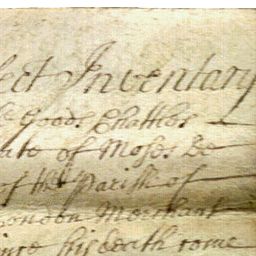 fect Inventary
Goods Chattles
ate of Moses De
of the Parish of
London Merchant
since his death come